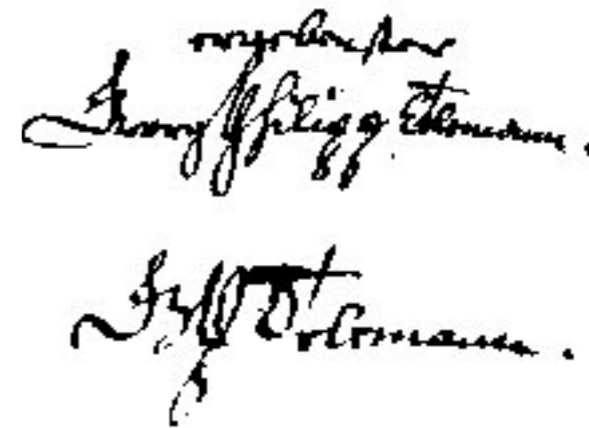 ergebenster
Georg Philipp Telemann.
G. P. Telemann.